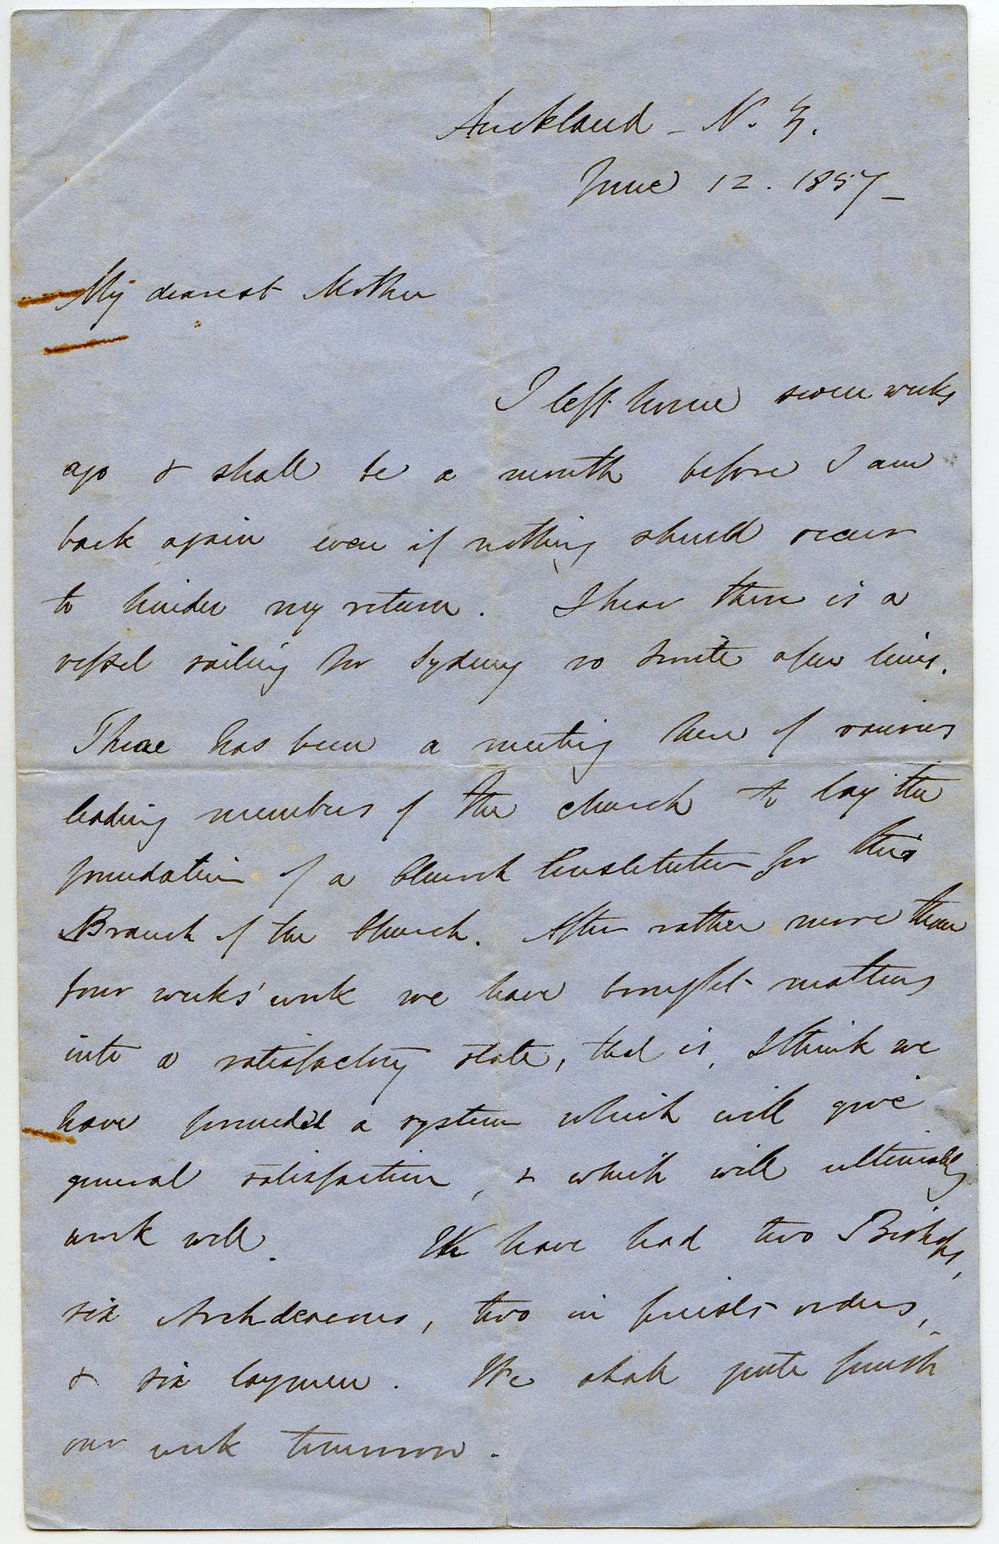 Auckland - N. Z.
June 12. 1857 -
My dearest Mother
I left home seven weeks
ago & shall be a month before I am
back again even if nothing should occur
to hinder my return. I hear there is a
vessel sailing for Sydney so write a few lines.
There has been a meeting here of various
leading members of the church to lay the
foundation of a Church Constitution for this
Branch of the Church. After rather more than
four weeks' work we have brought matters
into a satisfactory state, that is, I think we
have founded a system which will give
general satisfaction, & which will ultimately
work well. We have had two Bishops,
six Archdeacons, two in priests orders,
& six laymen. We shall quite finish
our work tomorrow.